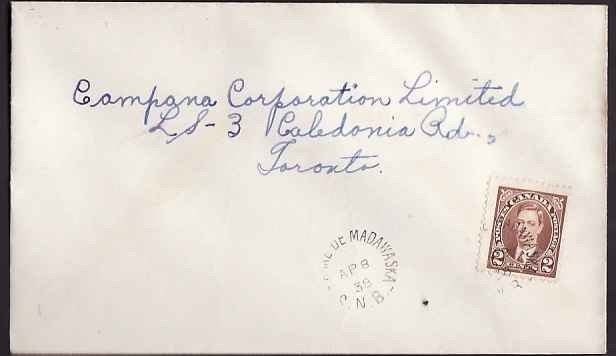 Campana Corporation Limited
LS-3 Caledonia Rd.,
Toronto.
POSTES CANADA POSTAGE
2 CENTS 2
DE MADAWASKA
AP 8
38
N.B.